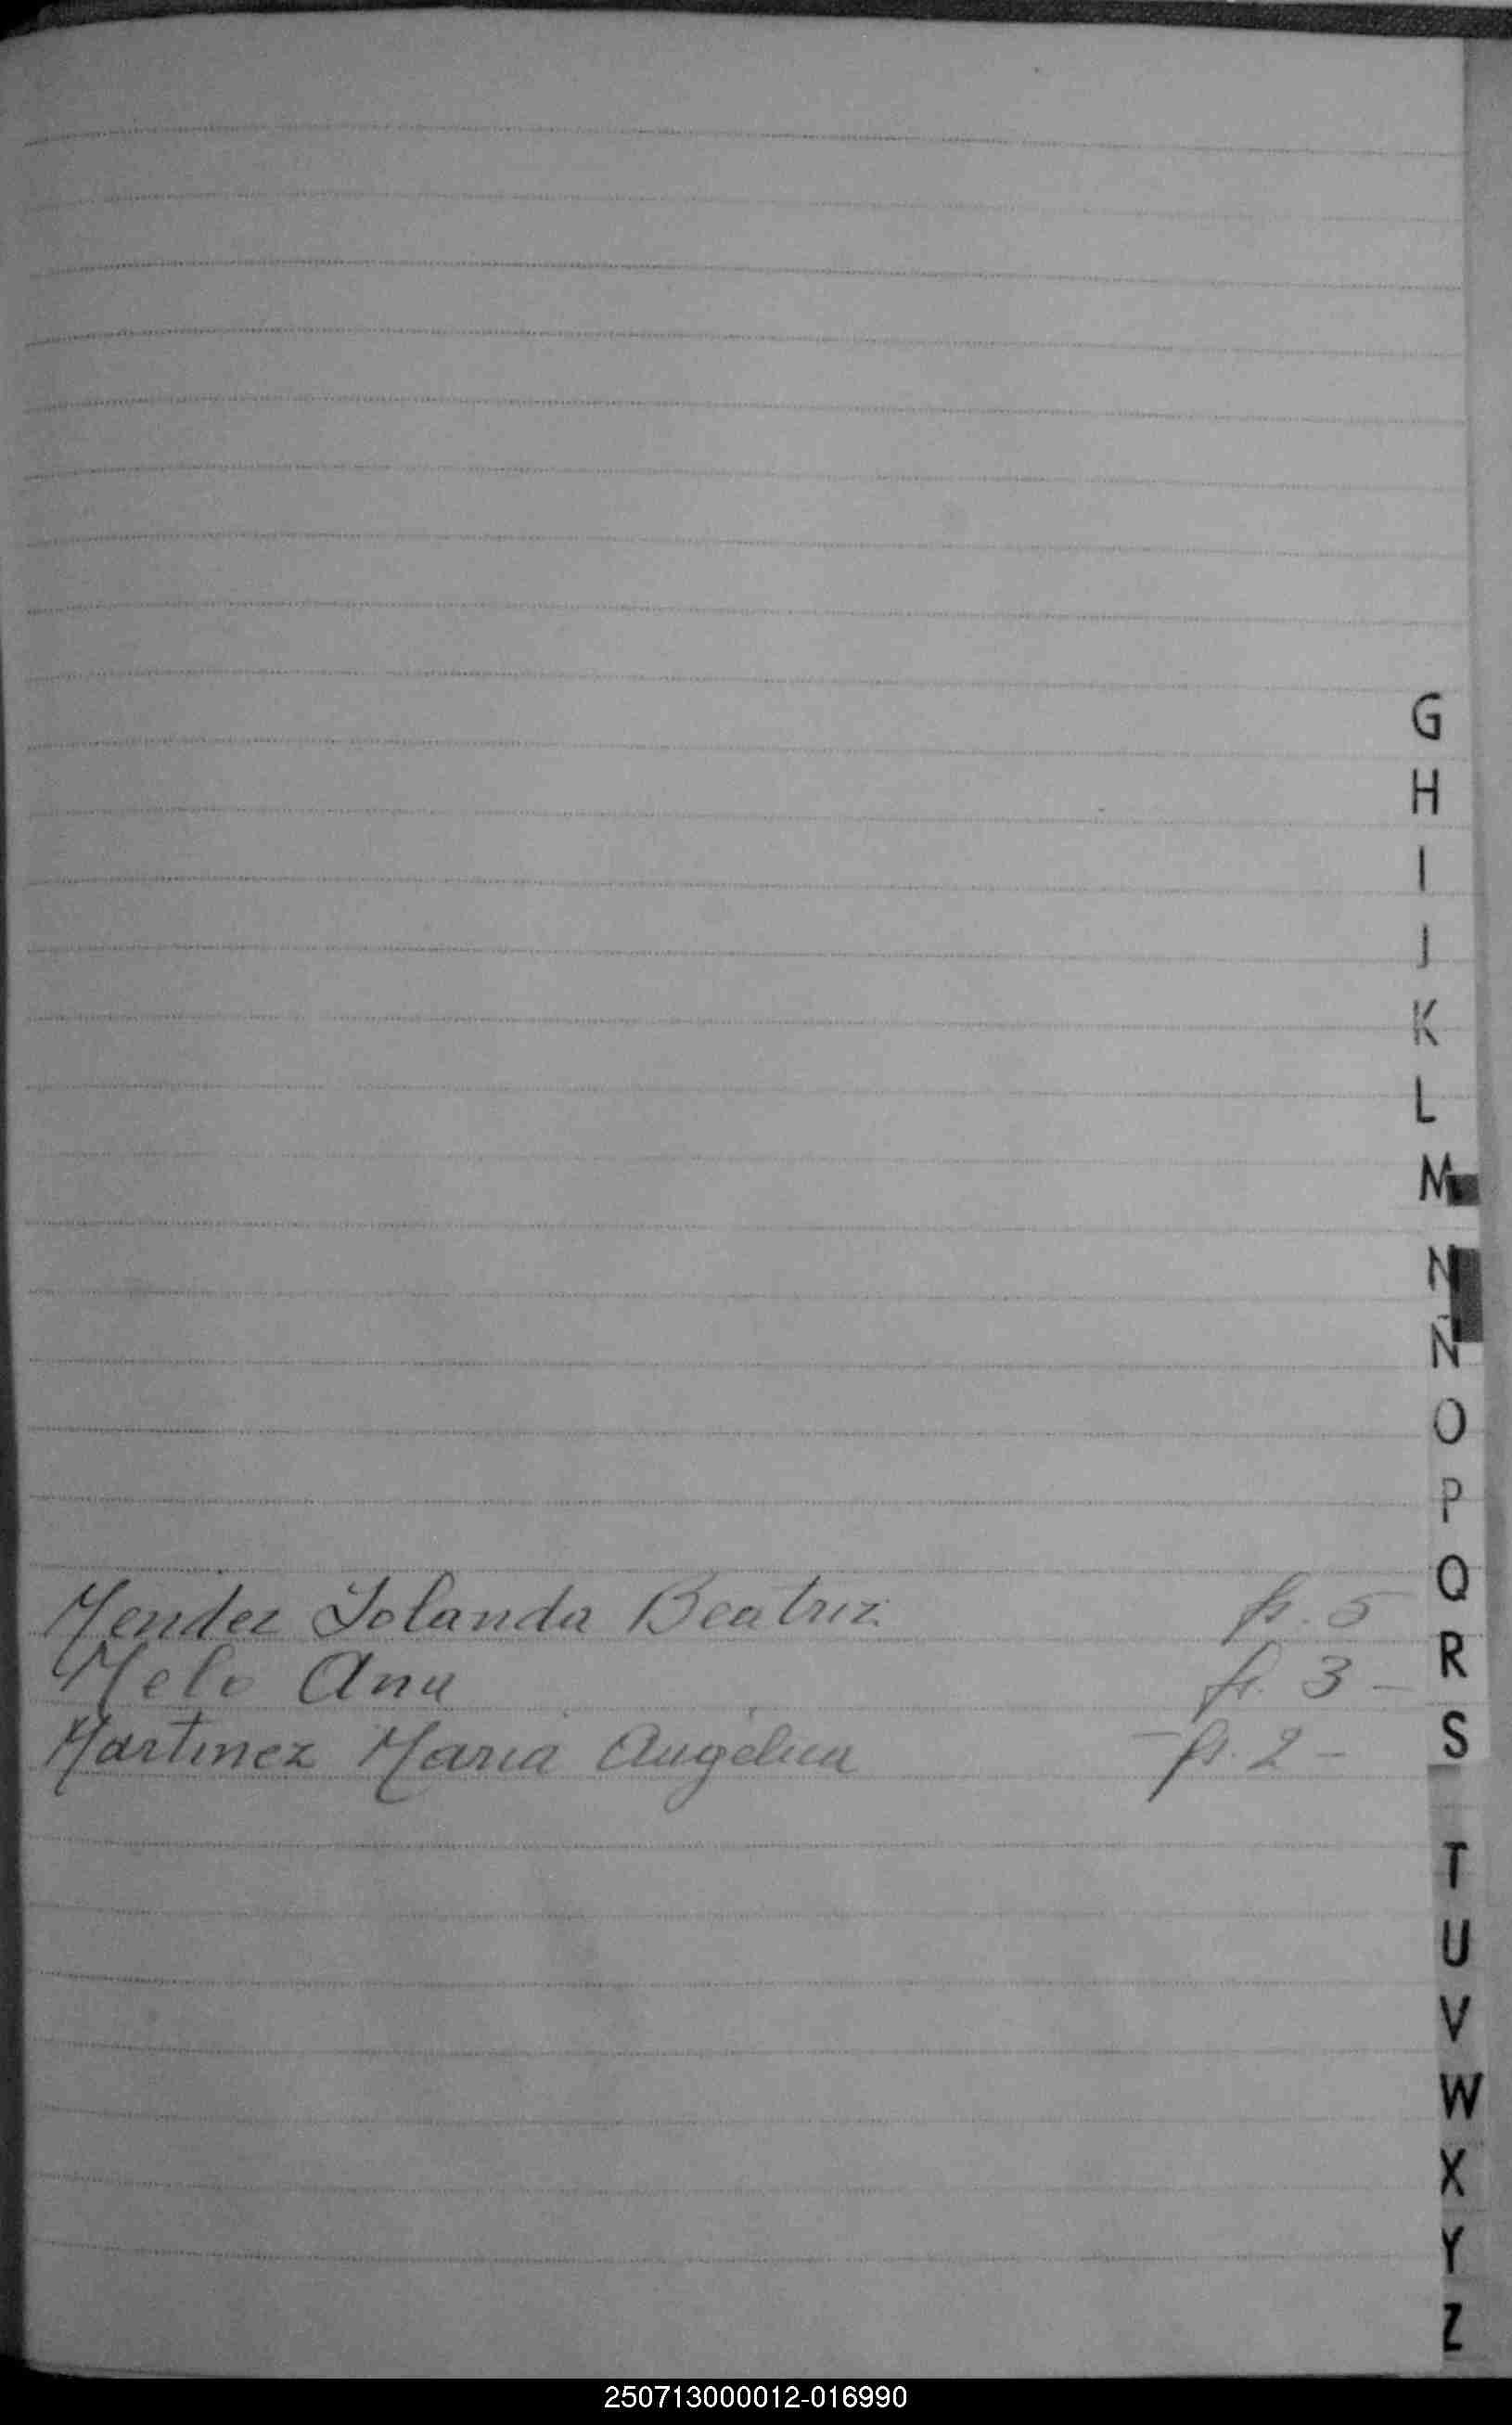 G
H
I
J
K
L
M
N
Ñ
O
P
Q
Mendez Yolanda Beatriz fs. 5
R
Melo Ana fs. 3 -
S
Martinez Maria Angélica - fs. 2 -
T
U
V
W
X
Y
Z
250713000012-016990